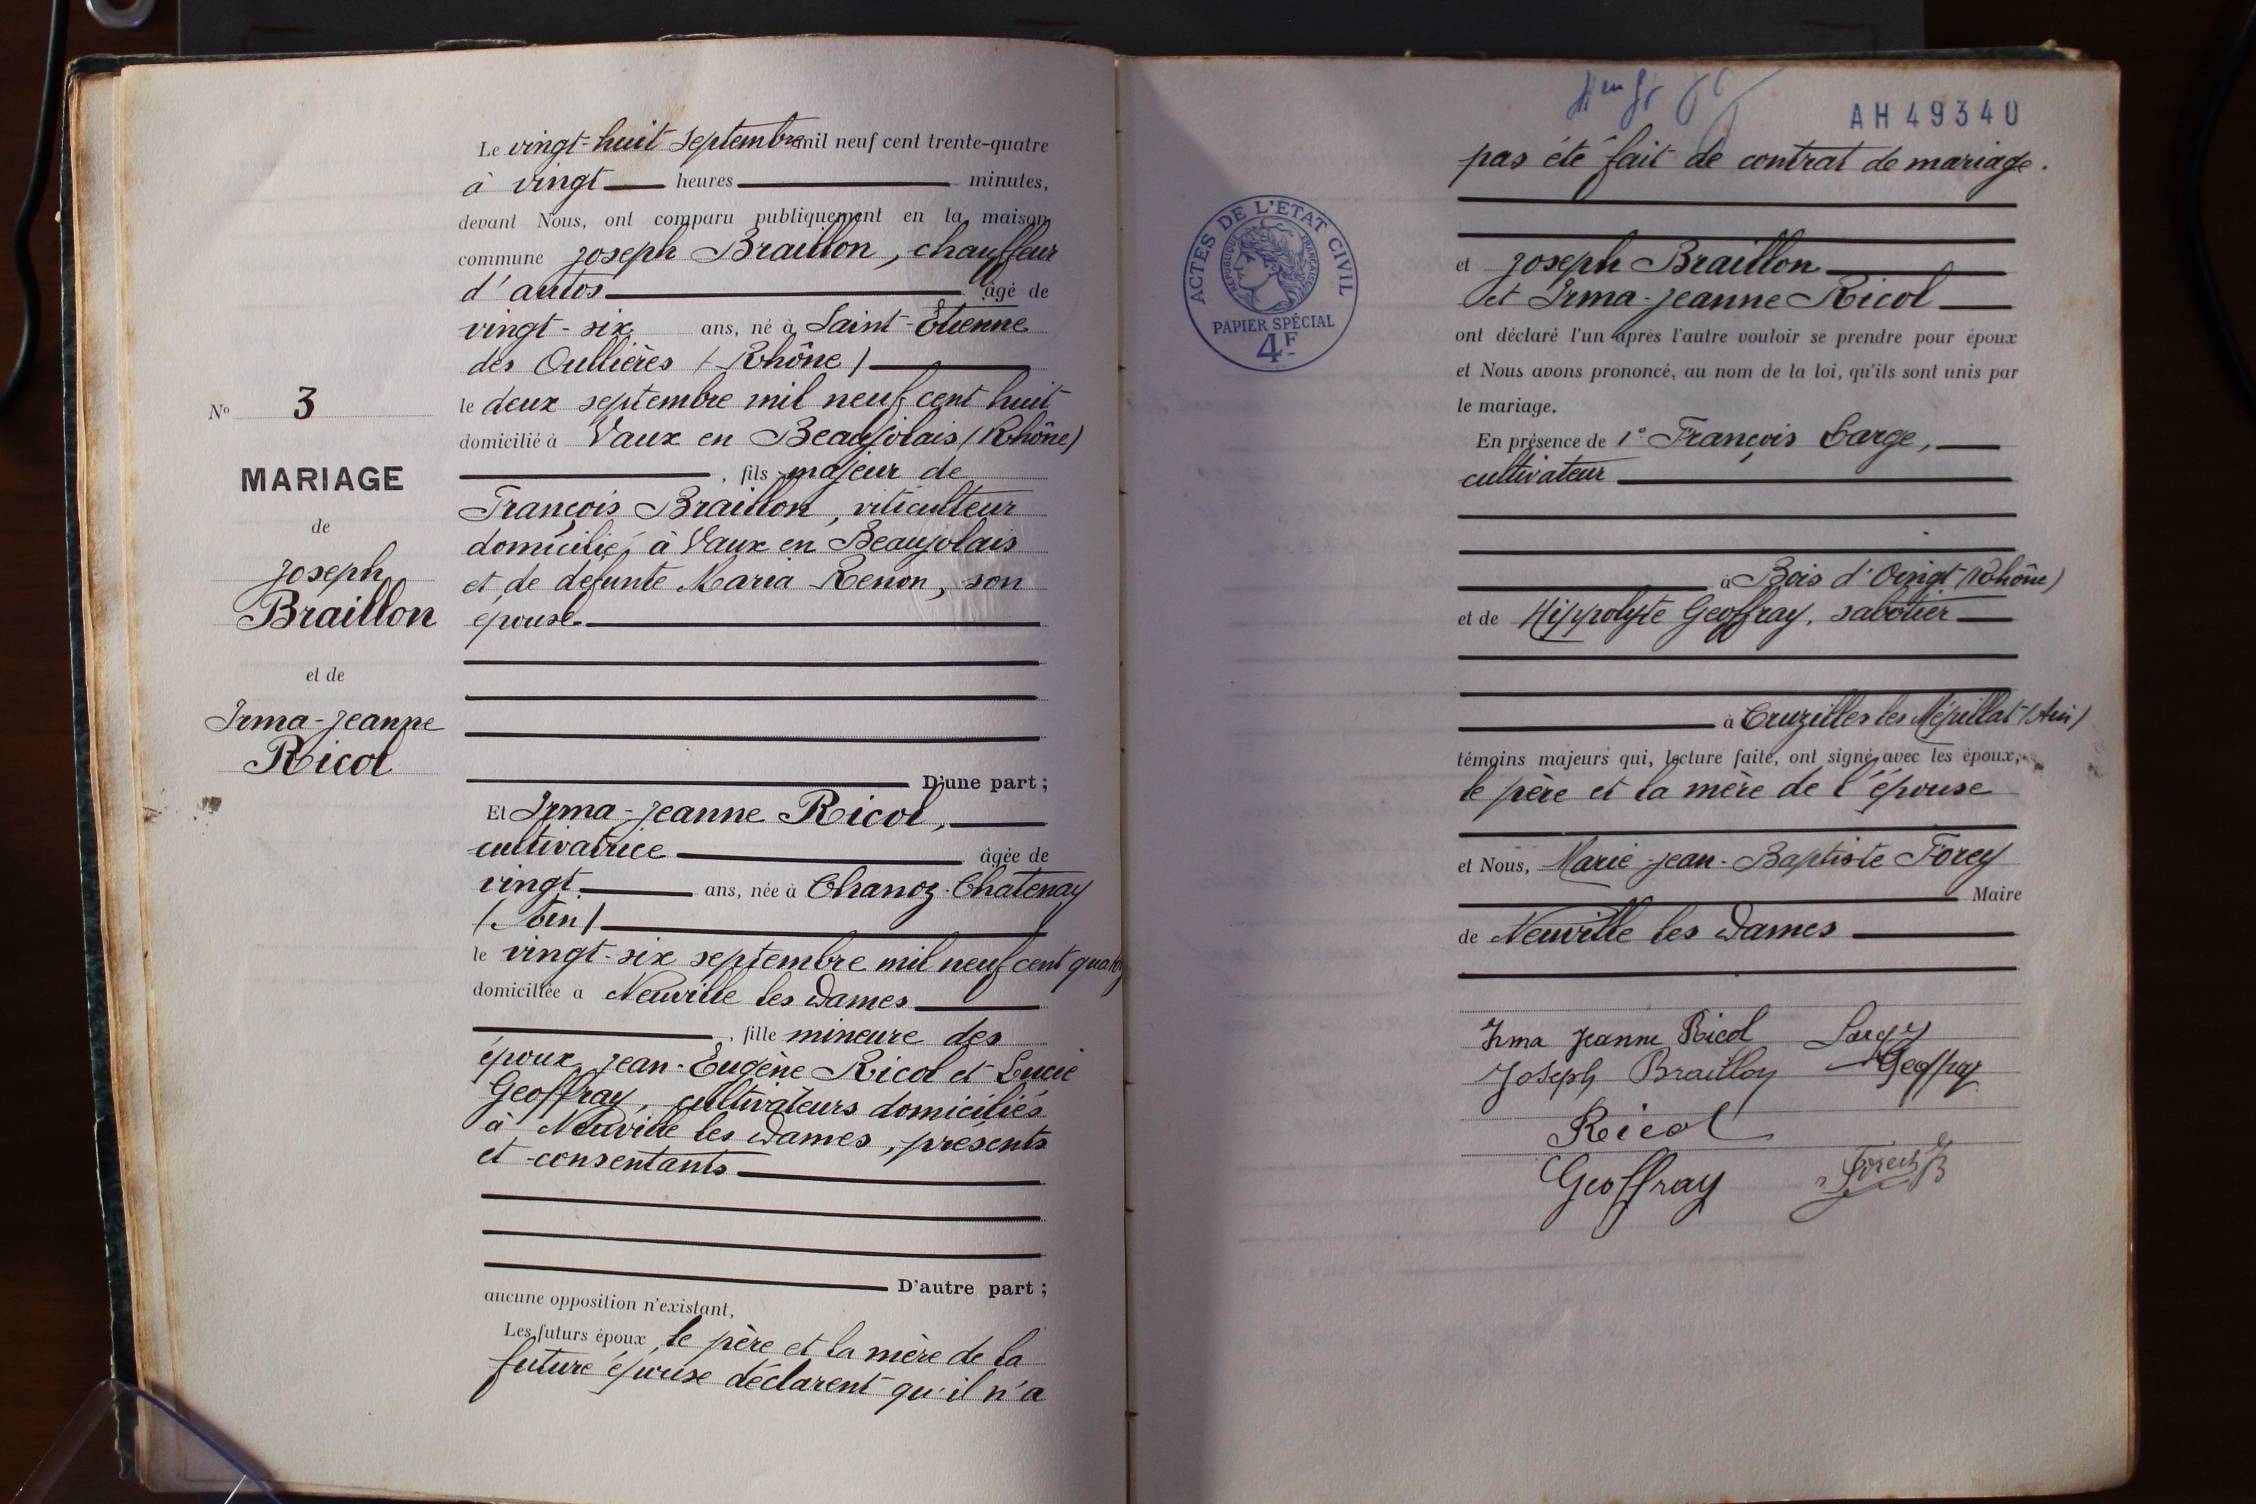 Le vingt-huit septembre mil neuf cent trente-quatre
à vingt heures minutes,
devant Nous, ont comparu publiquement en la maison
commune Joseph Braillon, chauffeur
d'autos âgé de
vingt-six ans, né à Saint-Etienne
des Oullières (Rhône)
le deux septembre mil neuf cent huit
domicilié à Vaux en Beaujolais (Rhône)
, fils majeur de
François Braillon, viticulteur
domicilié à Vaux en Beaujolais
et de defunte Maria Renon, son
épouse
D'une part ;
Et Irma-Jeanne Ricol,
cultivatrice âgée de
vingt ans, née à Chanoz-Chatenay
(Ain)
le vingt-six septembre mil neuf cent
domiciliée à Neuville les Dames
, fille mineure des
époux Jean-Eugène Ricol et Lucie
Geoffray, cultivateurs domiciliés
à Neuville les Dames, présents
et consentants
D'autre part ;
aucune opposition n'existant,
Les futurs époux, le père et la mère de la
future épouse déclarent qu'il n'a
N° 3
MARIAGE
de
Joseph
Braillon
et de
Irma-Jeanne
Ricol
AH 49340
pas été fait de contrat de mariage.
ACTES DE L'ETAT CIVIL
REPUBLIQUE FRANÇAISE
PAPIER SPÉCIAL
4F
et Joseph Braillon
et Irma-Jeanne Ricol
ont déclaré l'un après l'autre vouloir se prendre pour époux
et Nous avons prononcé, au nom de la loi, qu'ils sont unis par
le mariage.
En présence de 1° François Large,
cultivateur
à Bois d'Oingt (Rhône)
et de Hippolyte Geoffray, sabotier
à Cruzilles les Mépillat (Ain)
témoins majeurs qui, lecture faite, ont signé avec les époux,
le père et la mère de l'épouse
et Nous, Marie-Jean-Baptiste Forey
Maire
de Neuville les Dames
Irma Jeanne Ricol Large
Joseph Braillon Geoffray
Ricol
Geoffray